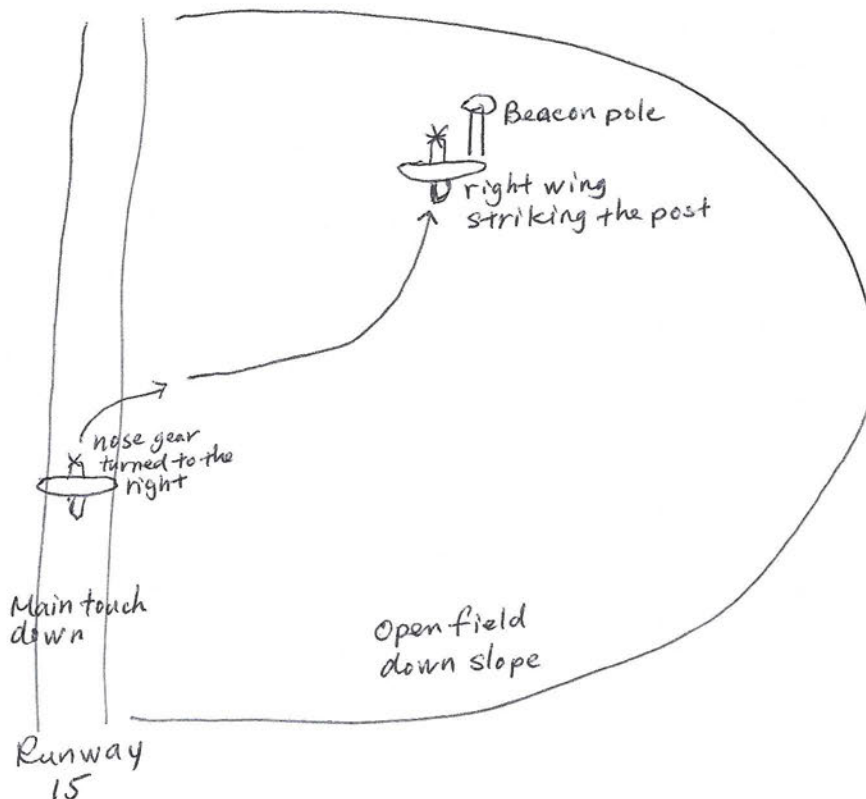 Beacon pole
right wing
striking the post
nose gear
turned to the
right
Main touch
down
Open field
down slope
Runway
15